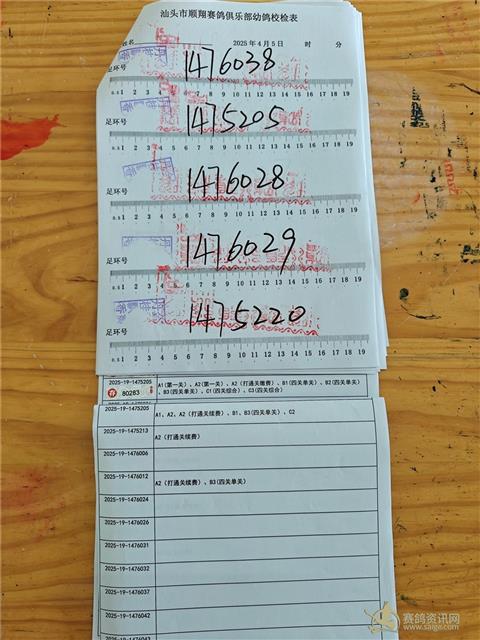 汕头市顺翔赛鸽俱乐部幼鸽校检表
姓名 2025年4月5日 时 分
足环号 1476038
0.5 1 2 3 4 5 6 7 8 9 10 11 12 13 14 15 16 17 18 19
足环号 1475205
0.5 1 2 3 4 5 6 7 8 9 10 11 12 13 14 15 16 17 18 19
足环号 1476028
0.5 1 2 3 4 5 6 7 8 9 10 11 12 13 14 15 16 17 18 19
足环号 1476029
0.5 1 2 3 4 5 6 7 8 9 10 11 12 13 14 15 16 17 18 19
足环号 1475220
0.5 1 2 3 4 5 6 7 8 9 10 11 12 13 14 15 16 17 18 19
2025-19-1475205 A1(第一关)、A3(第一关)、A2(打通关缴费)、B1(四关单关)、B2(四关单关)、B3(四关单关)、C1(四关综合)、C3(四关综合)
80283
2025-19-1475205 A1、A2、A2(打通关续费)、B1、B3(四关单关)、C2
2025-19-1475213 A2(打通关续费)
2025-19-1476006
2025-19-1476012 A2(打通关续费)、B3(四关单关)
2025-19-1476024
2025-19-1476026
2025-19-1476031
2025-19-1476032
2025-19-1476037
2025-19-1476042
赛鸽资讯网
www.saige.com